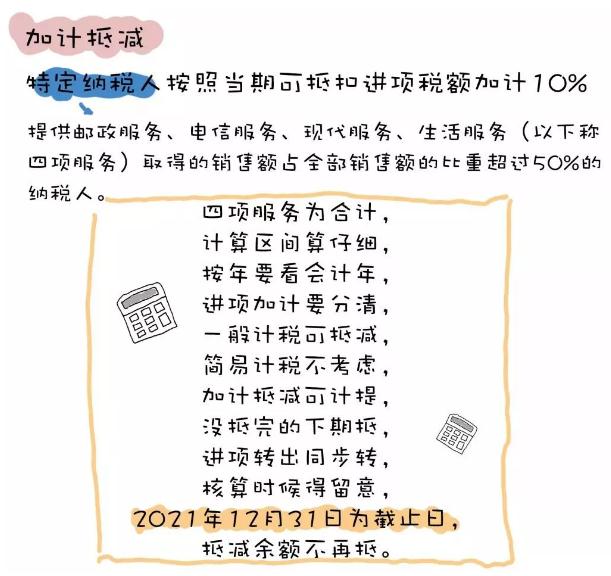 加计抵减
特定纳税人按照当期可抵扣进项税额加计10%
提供邮政服务、电信服务、现代服务、生活服务（以下称
四项服务）取得的销售额占全部销售额的比重超过50%的
纳税人。
四项服务为合计，
计算区间算仔细，
按年要看会计年，
进项加计要分清，
一般计税可抵减，
简易计税不考虑，
加计抵减可计提，
没抵完的下期抵，
进项转出同步转，
核算时候得留意，
2021年12月31日为截止日，
抵减余额不再抵。